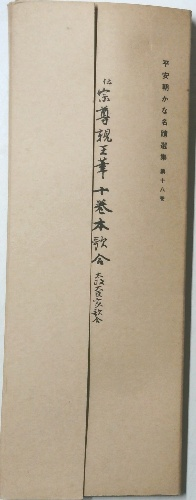 平安朝かな名蹟選集 第十八巻
伝 宗尊親王筆 十巻本歌合 太政大臣家歌合